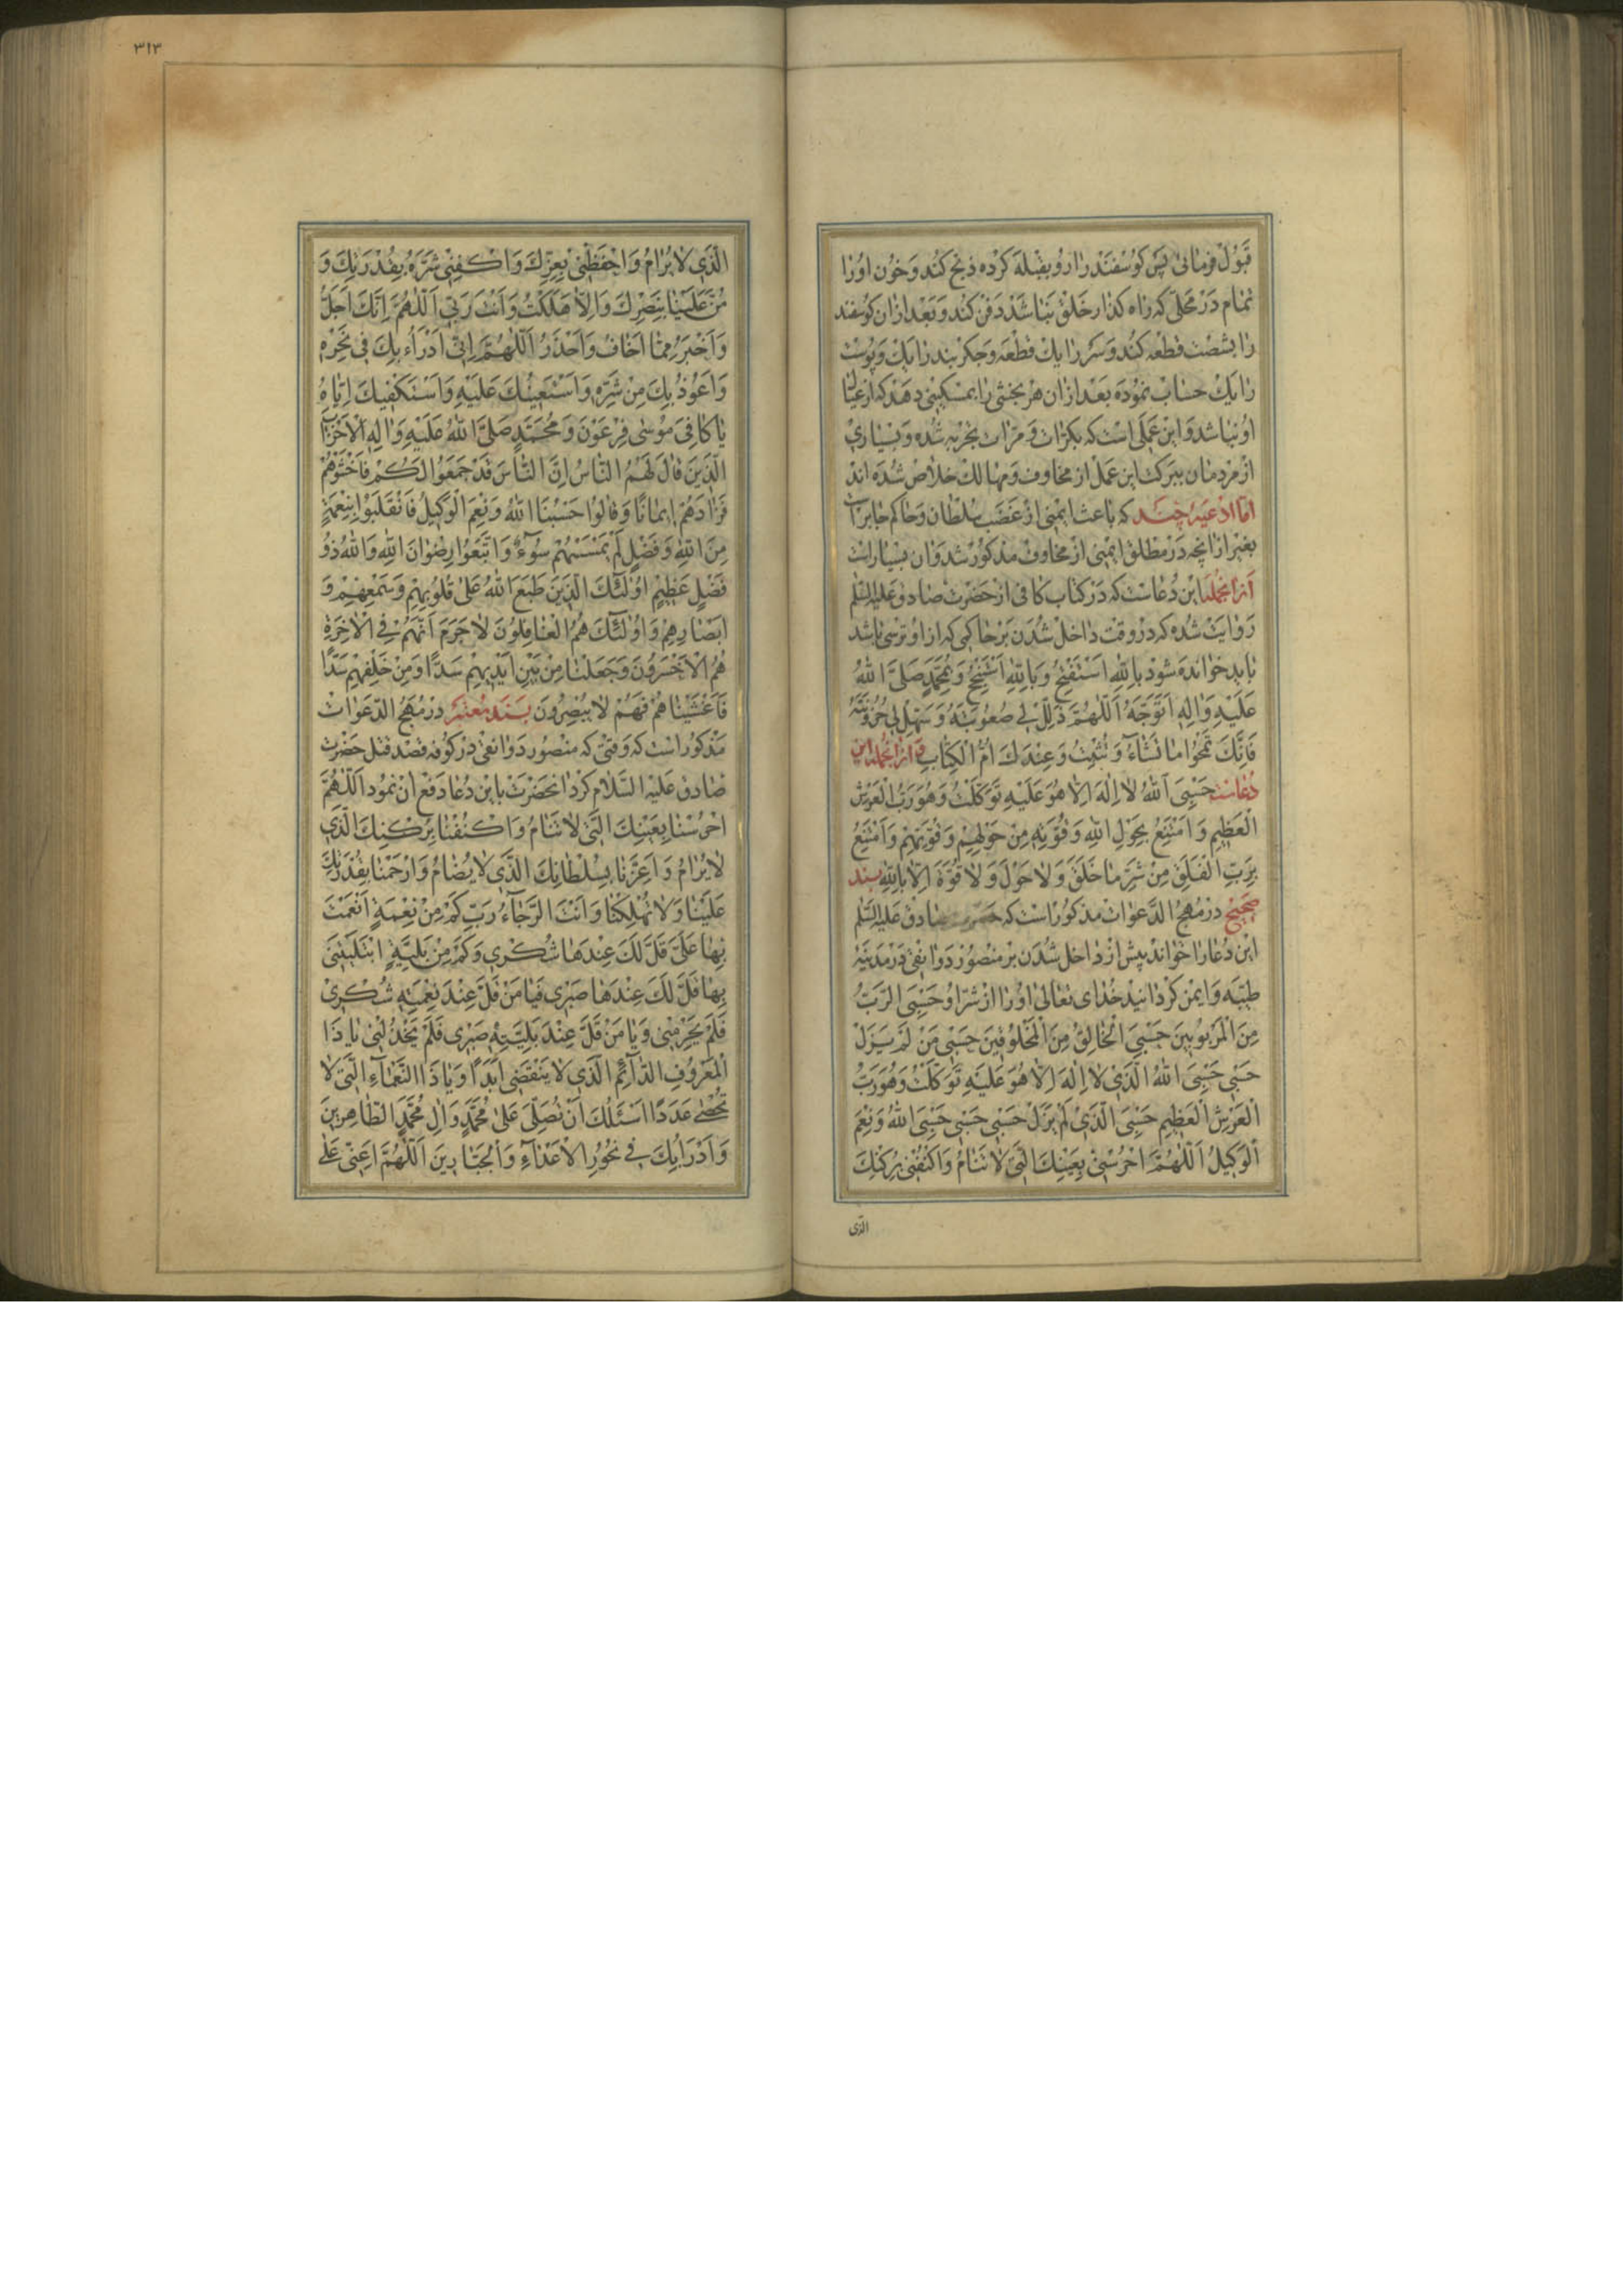 قَبُولْ فرمائی پَس کوسْفَنْدْ را رو بقبْلَه کَرْده ذبْح کُنَد و خُون اورا
تمام دَرْ مَحَلّی که راه کذار خَلْق نباشَد دَفن کُند و بَعْد ازان کوسفند
را بشصْت قطْعه کُند و سَر را یک قطْعَه و جکر بند را یک و پوست
را یَک حساب نموده بعْد ازان هر بخشی را بمسْکینی دهد که از عیال
او نباشد و این عملی است که بکرّات و مرّات تجربه شُده و بسیاری
از مردمان ببرکت این عمل از مخاوف و مهالک خلاص شُده اند
امّا ادْعیهٔ چند که باعث ایمنی از غَضَب سُلْطان و حاکم جابر است
بغیر ازانچه در مطلق ایمنی از مخاوف مذکور شد و ان بسیار است
ازانجمله این دُعاست که دَر کتاب کافی از حضرت صادق علیه السّلم
روایت شده که در وقت داخل شُدن بر حاکمی که از او ترسی باشد
باید خوانده شود بِاللّهِ اَسْتَفْتِحُ وَ بِاللّهِ اَسْتَنْجِحُ وَ بِمُحَمَّدٍ صَلَّی اللّهُ
عَلَیْهِ وَ الِهِ اَتَوَجَّهُ اَللّهُمَّ ذَلِّلْ لی صُعُوبَتَهُ وَ سَهِّلْ لی حُزُونَتَهُ
فَاِنَّکَ تَمْحُوا ما تَشاءُ وَ تُثْبِتُ وَ عِنْدَکَ اُمُّ الْکِتابِ و ازانجمله این
دُعاست حَسْبِیَ اَللّهُ لا اِلهَ اِلاّ هُوَ عَلَیْهِ تَوَکَّلْتُ وَ هُوَ رَبُّ الْعَرْشِ
الْعَظیمِ وَ اَمْتَنِعُ بِحَوْلِ اللّهِ وَ قُوَّتِهِ مِنْ حَوْلِهِمْ وَ قُوَّتِهِمْ وَ اَمْتَنِعُ
بِرَبِّ الْفَلَقِ مِنْ شَرِّ ما خَلَقَ وَ لا حَوْلَ وَ لا قُوَّةَ اِلاّ بِاللّهِ بسند
صحیح در مُهج الدّعوات مذکور است که حضرت صادق علیه السّلم
این دُعا را خواند پیش از داخل شُدن بر منصور دوانقی در مدینهٔ
طیّبه و ایمن کردانید خُدای تعالی اورا از شرّ او حَسْبِیَ الرَّبُّ
مِنَ الْمَرْبُوبینَ حَسْبِیَ الْخالِقُ مِنَ الْمَخْلُوقینَ حَسْبی مَنْ لَمْ یَزَلْ
حَسْبی حَسْبِیَ اللّهُ الَّذی لا اِلهَ اِلاّ هُوَ عَلَیْهِ تَوَکَّلْتُ وَ هُوَ رَبُّ
الْعَرْشِ الْعَظیمِ حَسْبِیَ الَّذی لَمْ یَزَلْ حَسْبی حَسْبی حَسْبِیَ اللّهُ وَ نِعْمَ
الْوَکیلُ اَللّهُمَّ احْرُسْنی بِعَیْنِکَ الَّتی لا تَنامُ وَ اکْنُفْنی بِرُکْنِکَ
الذی
٣١٣
الَّذی لا یُرامُ وَ احْفَظْنی بِعِزِّکَ وَ اکْفِنی شَرَّهُ بِقُدْرَتِکَ وَ
مُنَّ عَلَیْنا بِنَصْرِکَ وَ اِلاّ هَلَکْتُ وَ اَنْتَ رَبّی اَللّهُمَّ اِنَّکَ اَجَلُّ
وَ اَخْبَرُ مِمّا اَخافُ وَ اَحْذَرُ اَللّهُمَّ اِنّی اَدْرَاُ بِکَ فی نَحْرِهِ
وَ اَعُوذُ بِکَ مِنْ شَرِّهِ وَ اَسْتَعینُکَ عَلَیْهِ وَ اَسْتَکْفیکَ اِیّاهُ
یا کافِیَ مُوسی فِرْعَوْنَ وَ مُحَمَّدٍ صَلَّی اللّهُ عَلَیْهِ وَ الِهِ الْاَحْزابَ
الَّذینَ قالَ لَهُمُ النّاسُ اِنَّ النّاسَ قَدْ جَمَعُوا لَکُمْ فَاخْشَوْهُمْ
فَزادَهُمْ ایمانًا وَ قالُوا حَسْبُنَا اللّهُ وَ نِعْمَ الْوَکیلُ فَانْقَلَبُوا بِنِعْمَةٍ
مِنَ اللّهِ وَ فَضْلٍ لَمْ یَمْسَسْهُمْ سُوءٌ وَ اتَّبَعُوا رِضْوانَ اللّهِ وَ اللّهُ ذُو
فَضْلٍ عَظیمٍ اُولٰئِکَ الَّذینَ طَبَعَ اللّهُ عَلی قُلُوبِهِمْ وَ سَمْعِهِمْ وَ
اَبْصارِهِمْ وَ اُولٰئِکَ هُمُ الْغافِلُونَ لا جَرَمَ اَنَّهُمْ فِی الْاخِرَةِ
هُمُ الْاَخْسَرُونَ وَ جَعَلْنا مِنْ بَیْنِ اَیْدیهِمْ سَدًّا وَ مِنْ خَلْفِهِمْ سَدًّا
فَاَغْشَیْناهُمْ فَهُمْ لا یُبْصِرُونَ بسند معتبر در مُهج الدّعوات
مذکور است که وقتی که منصور دوانقی در کوفه قصد قتل حضرت
صادق علیه السّلام کرد انحضرت باین دُعا دفع ان نمود اَللّهُمَّ
احْرُسْنا بِعَیْنِکَ الَّتی لا تَنامُ وَ اکْنُفْنا بِرُکْنِکَ الَّذی
لا یُرامُ وَ اَعِزَّنا بِسُلْطانِکَ الَّذی لا یُضامُ وَ ارْحَمْنا بِقُدْرَتِکَ
عَلَیْنا وَ لا تُهْلِکْنا وَ اَنْتَ الرَّجاءُ رَبِّ کَمْ مِنْ نِعْمَةٍ اَنْعَمْتَ
بِها عَلَیَّ قَلَّ لَکَ عِنْدَها شُکْری وَ کَمْ مِنْ بَلِیَّةٍ ابْتَلَیْتَنی
بِها قَلَّ لَکَ عِنْدَها صَبْری فَیا مَنْ قَلَّ عِنْدَ نِعْمَتِهِ شُکْری
فَلَمْ یَحْرِمْنی وَ یا مَنْ قَلَّ عِنْدَ بَلِیَّتِهِ صَبْری فَلَمْ یَخْذُلْنی یا ذَا
الْمَعْرُوفِ الدّائِمِ الَّذی لا یَنْقَضی اَبَدًا وَ یا ذَا النَّعْماءِ الَّتی لا
تُحْصی عَدَدًا اَسْئَلُکَ اَنْ تُصَلِّیَ عَلی مُحَمَّدٍ وَ الِ مُحَمَّدٍ الطّاهِرینَ
وَ اَدْرَاُ بِکَ فی نُحُورِ الْاَعْداءِ وَ الْجَبّارینَ اَللّهُمَّ اَعِنّی عَلی